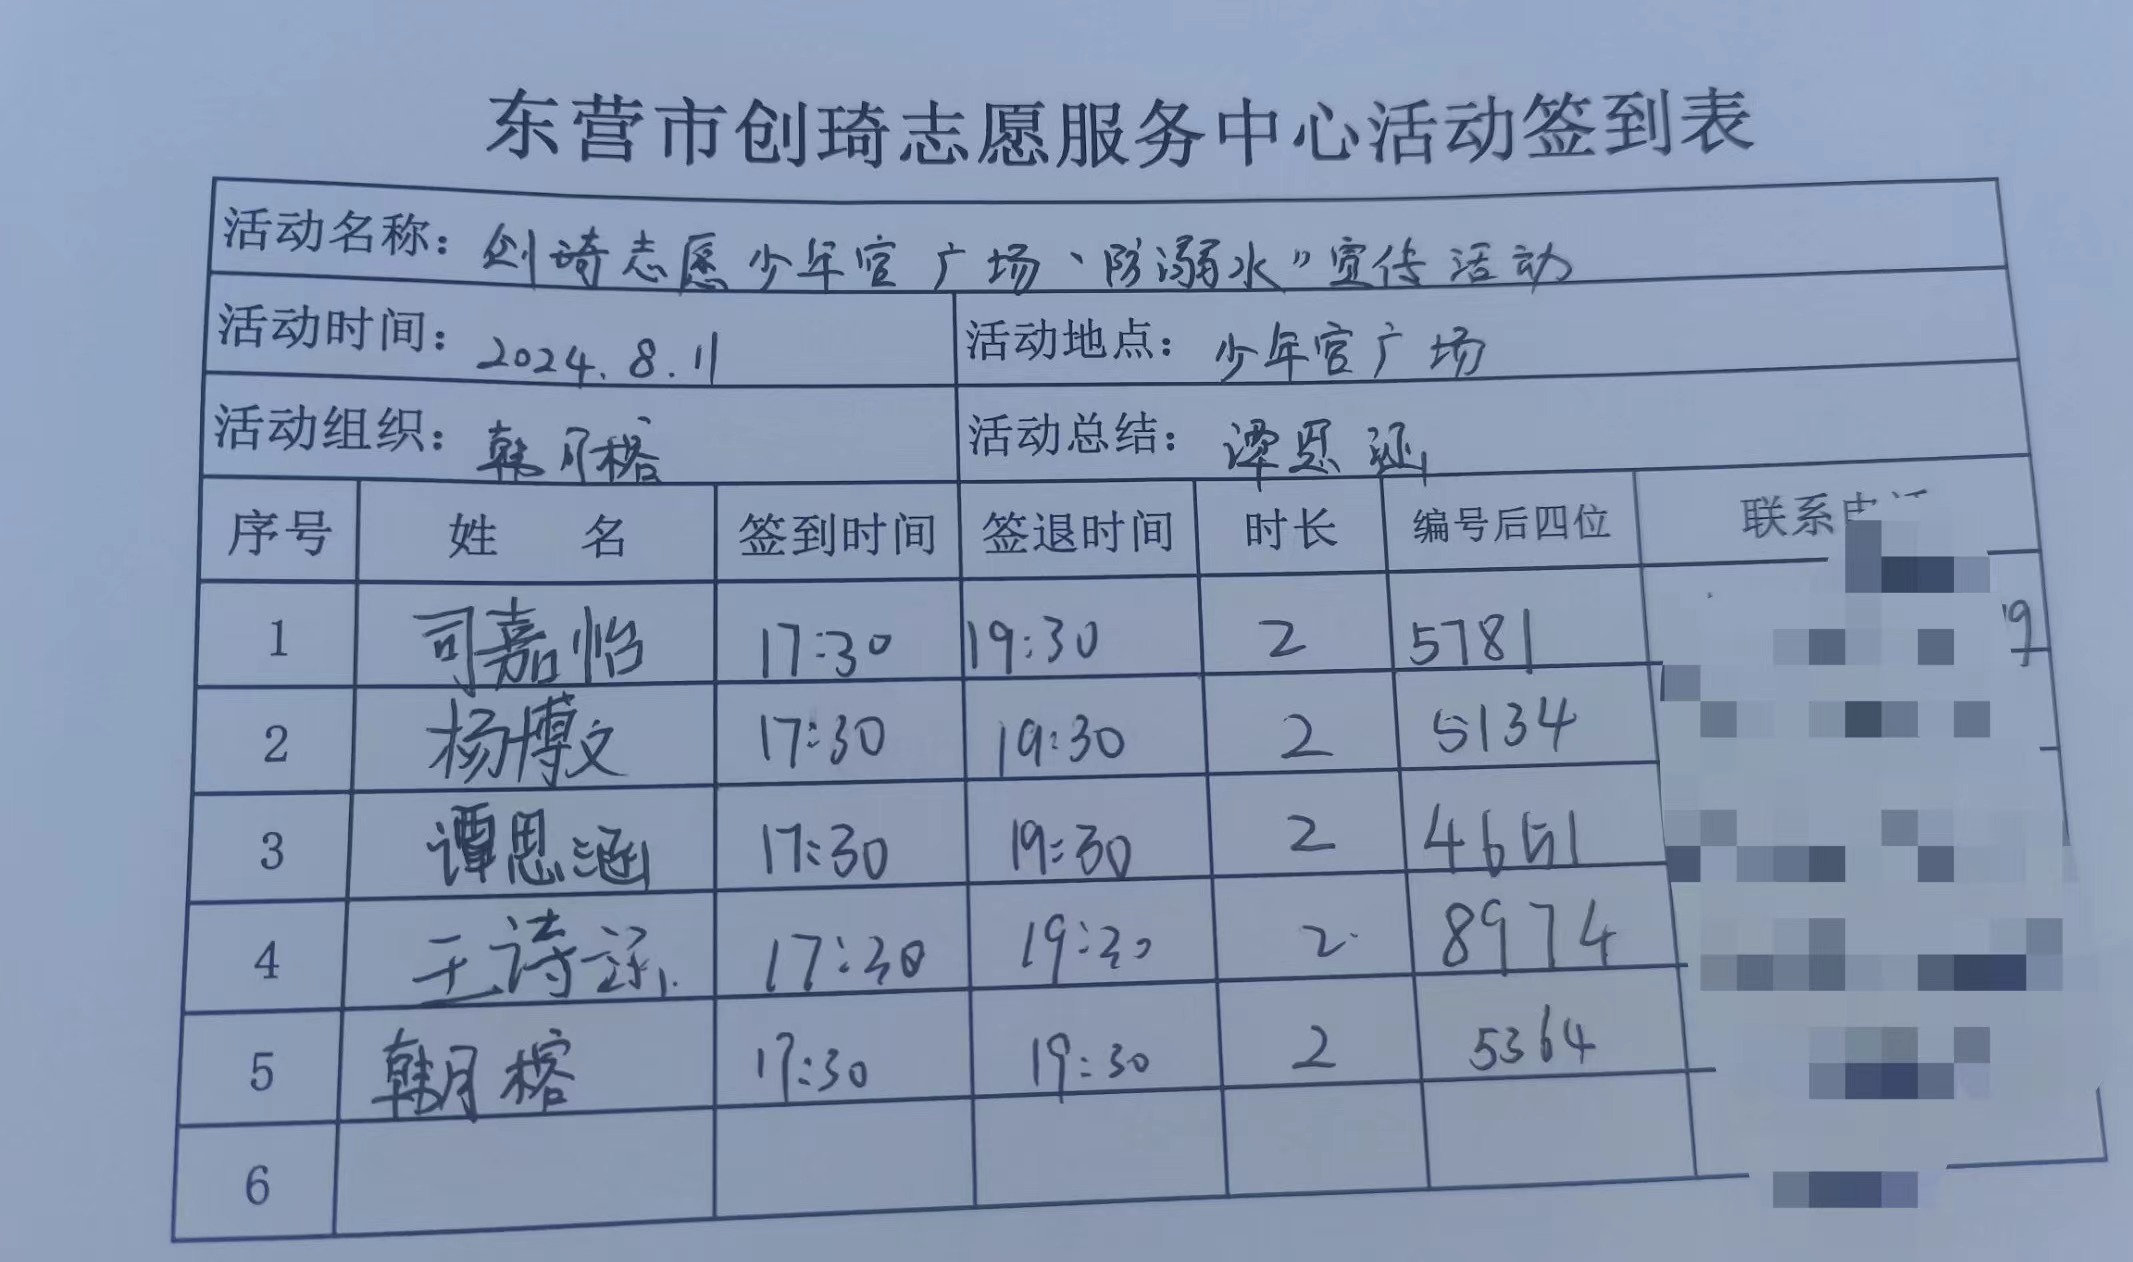 东营市创琦志愿服务中心活动签到表
活动名称：创琦志愿少年宫广场“防溺水”宣传活动
活动时间：2024.8.11 活动地点：少年宫广场
活动组织：韩月榕 活动总结：谭思涵
序号 姓名 签到时间 签退时间 时长 编号后四位 联系电话
1 司嘉怡 17:30 19:30 2 5781 9
2 杨博文 17:30 19:30 2 5134
3 谭思涵 17:30 19:30 2 4651
4 王诗涵 17:30 19:30 2 8974
5 韩月榕 17:30 19:30 2 5364
6